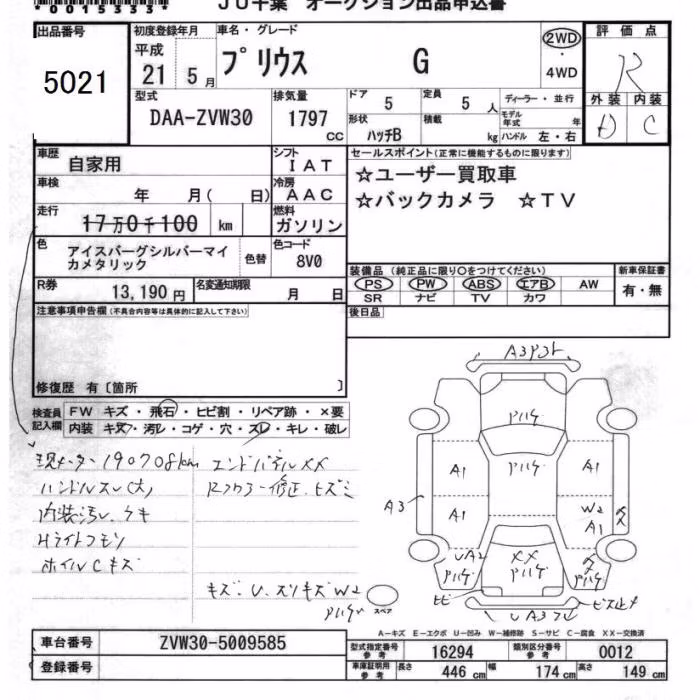 *0015333*
JU千葉 オークション出品申込書
出品番号
5021
初度登録年月
平成
21 5月
車名・グレード
プリウス G
2WD
・
4WD
評価点
R
外装 内装
D C
型式
DAA-ZVW30
排気量
1797
cc
ドア
5
定員
5人
ディーラー・並行
形状
ハッチB
積載
kg
モデル
年式
年
ハンドル 左・右
車歴
自家用
シフト
IAT
車検
年 月( 日)
冷房
AAC
走行
17万0千100 km
燃料
ガソリン
色
アイスバーグシルバーマイ
カメタリック
色替
色コード
8V0
R券
13,190円
名変通知期限
月 日
セールスポイント(正常に機能するものに限ります)
☆ユーザー買取車
☆バックカメラ ☆TV
装備品(純正品に限り○をつけてください)
PS PW ABS エアB AW
SR ナビ TV カワ
新車保証書
有・無
後日品
注意事項申告欄(不具合内容等は具体的に記入して下さい)
修復歴 有〔箇所 〕
検査員
記入欄
FW キズ・飛石・ヒビ割・リペア跡・×要
内装 キズ・汚レ・コゲ・穴・スレ・キレ・破レ
現メーター190708km
ハンドルスレ(大)
内装汚レ、キキ
Hライトクモリ
ホイルCキズ
エンドパネルXX
Rフロアー修正、ヒズミ
キズ、U、スリキズW2
アハゲ
スペア
A3アコト
アハゲ
アハゲ
A1
A1
A3
A1
W2
A1
UA2
アハゲ
XX
アハゲ
アハゲ
ヒビ
UA3
ビス止メ
A-キズ E-エクボ U-凹み W-補修跡 S-サビ C-腐食 XX-交換済
車台番号
ZVW30-5009585
登録番号
型式指定番号
参考
16294
類別区分番号
参考
0012
車庫証明用
参考
長さ 446cm 幅 174cm 高さ 149cm